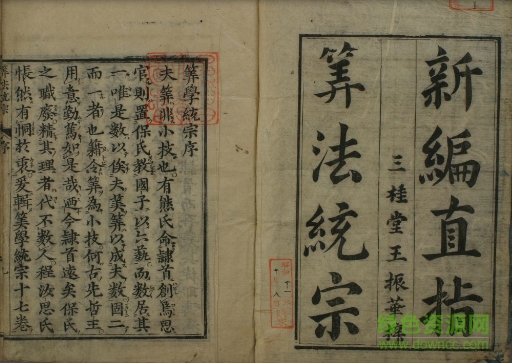 新編直指
三桂堂王振華梓
筭法統宗
筭學統宗序
夫筭非小技也有熊氏命隸首創焉思
官則置保氏教國子以六藝而數居其
一唯是數以俟夫筭筭以成夫數圖二
而一者也籍令筭為小技何古先哲王
用意勤篤如是哉迺今隸首遠矣保氏
之職廢精其理者代不數人程汝思氏
悵然有恫於衷爰輯筭學統宗十七卷
序
绿色资源网
www.downcc.com